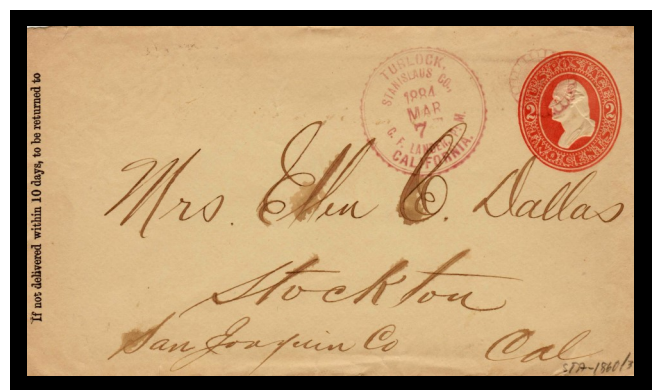 If not delivered within 10 days, to be returned to
TURLOCK,
STANISLAUS CO.,
1884
MAR
7
CALIFORNIA.
2 2
Mrs. Ellen C. Dallas
Stockton
San Joaquin Co Cal